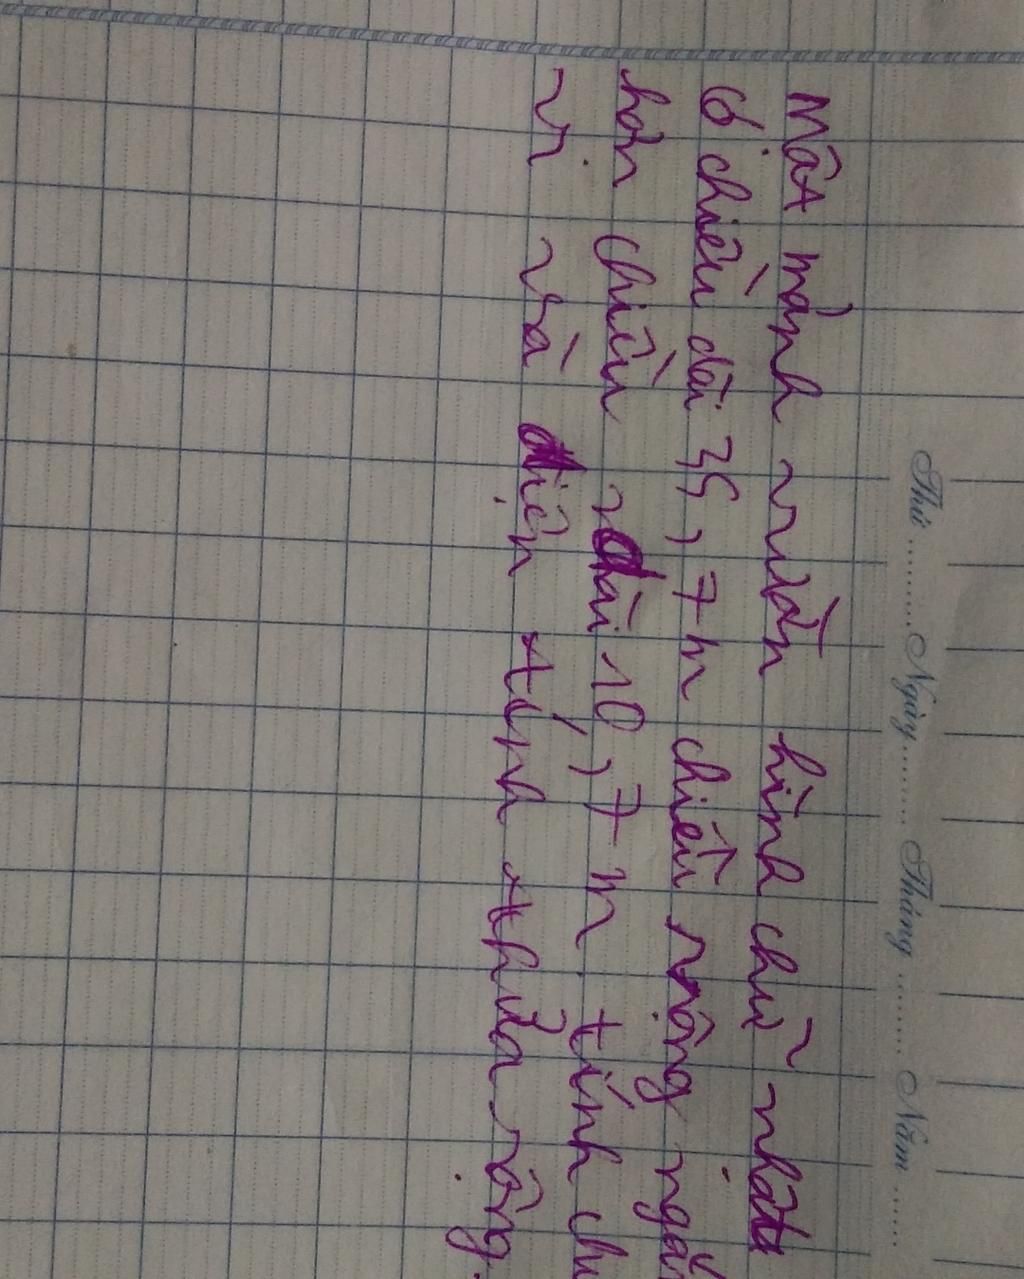 Thứ ........ Ngày ........ Tháng ........ Năm ......
Một mảnh vườn hình chữ nhật
có chiều dài 35,7m chiều rộng ngắn
hơn chiều dài 10,7m tính chu
vi và diện tính thửa rộng.